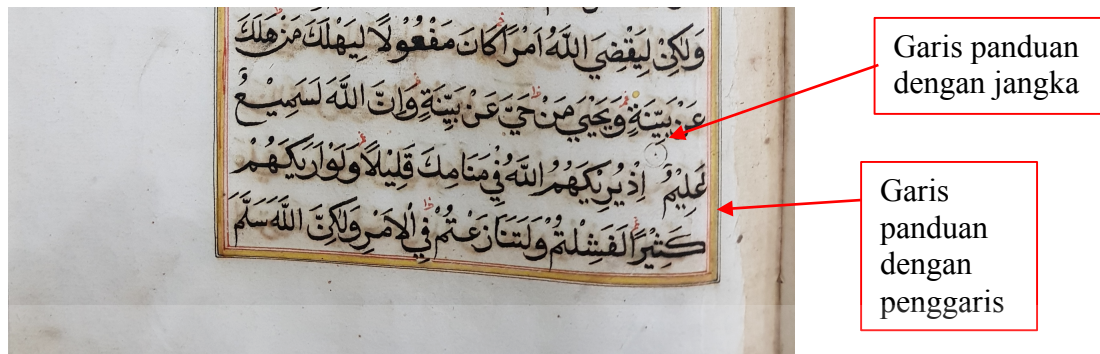 وَلَكِنْ لِيَقْضِيَ اللَّهُ اَمْرًا كَانَ مَفْعُولًا لِيَهْلِكَ مَنْ هَلَكَ
عَنْ بَيِّنَةٍ وَيَحْيَي مَنْ حَيَّ عَنْ بَيِّنَةٍ وَاِنَّ اللَّهَ لَسَمِيْعٌ
عَلِيْمٌ اِذْ يُرِيْكَهُمُ اللَّهُ فِي مَنَامِكَ قَلِيْلًا وَلَوْ اَرَيكَهُمْ
كَثِيْرًا لَفَشِلْتُمْ وَلَتَنَازَعْتُمْ فِي الْاَمْرِ وَلَكِنَّ اللَّهَ سَلَّمَ
Garis panduan
dengan jangka
Garis
panduan
dengan
penggaris